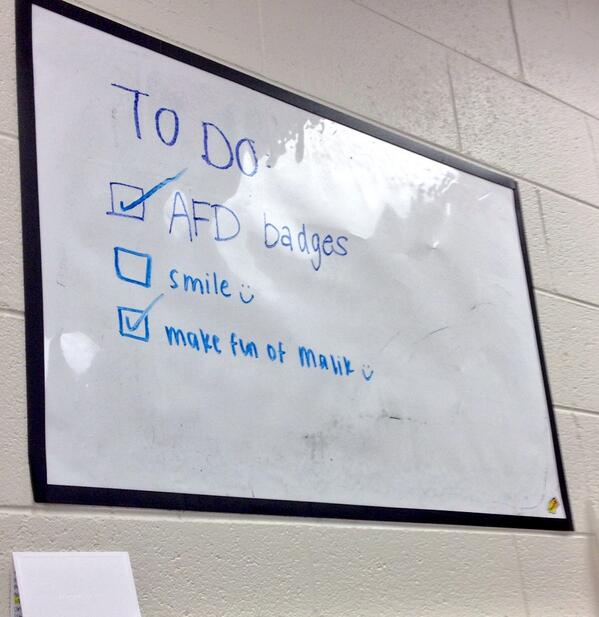 TO DO
☑ AFD badges
☐ smile ☺
☑ make fun of malik ☺